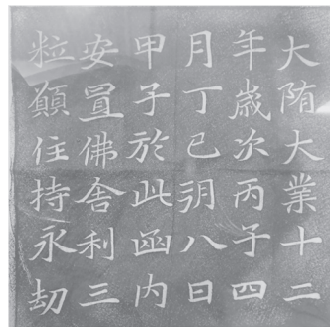 大隋大業十二
年歲次丙子四
月丁巳朔八日
甲子於此函内
安置佛舎利三
粒願住持永劫